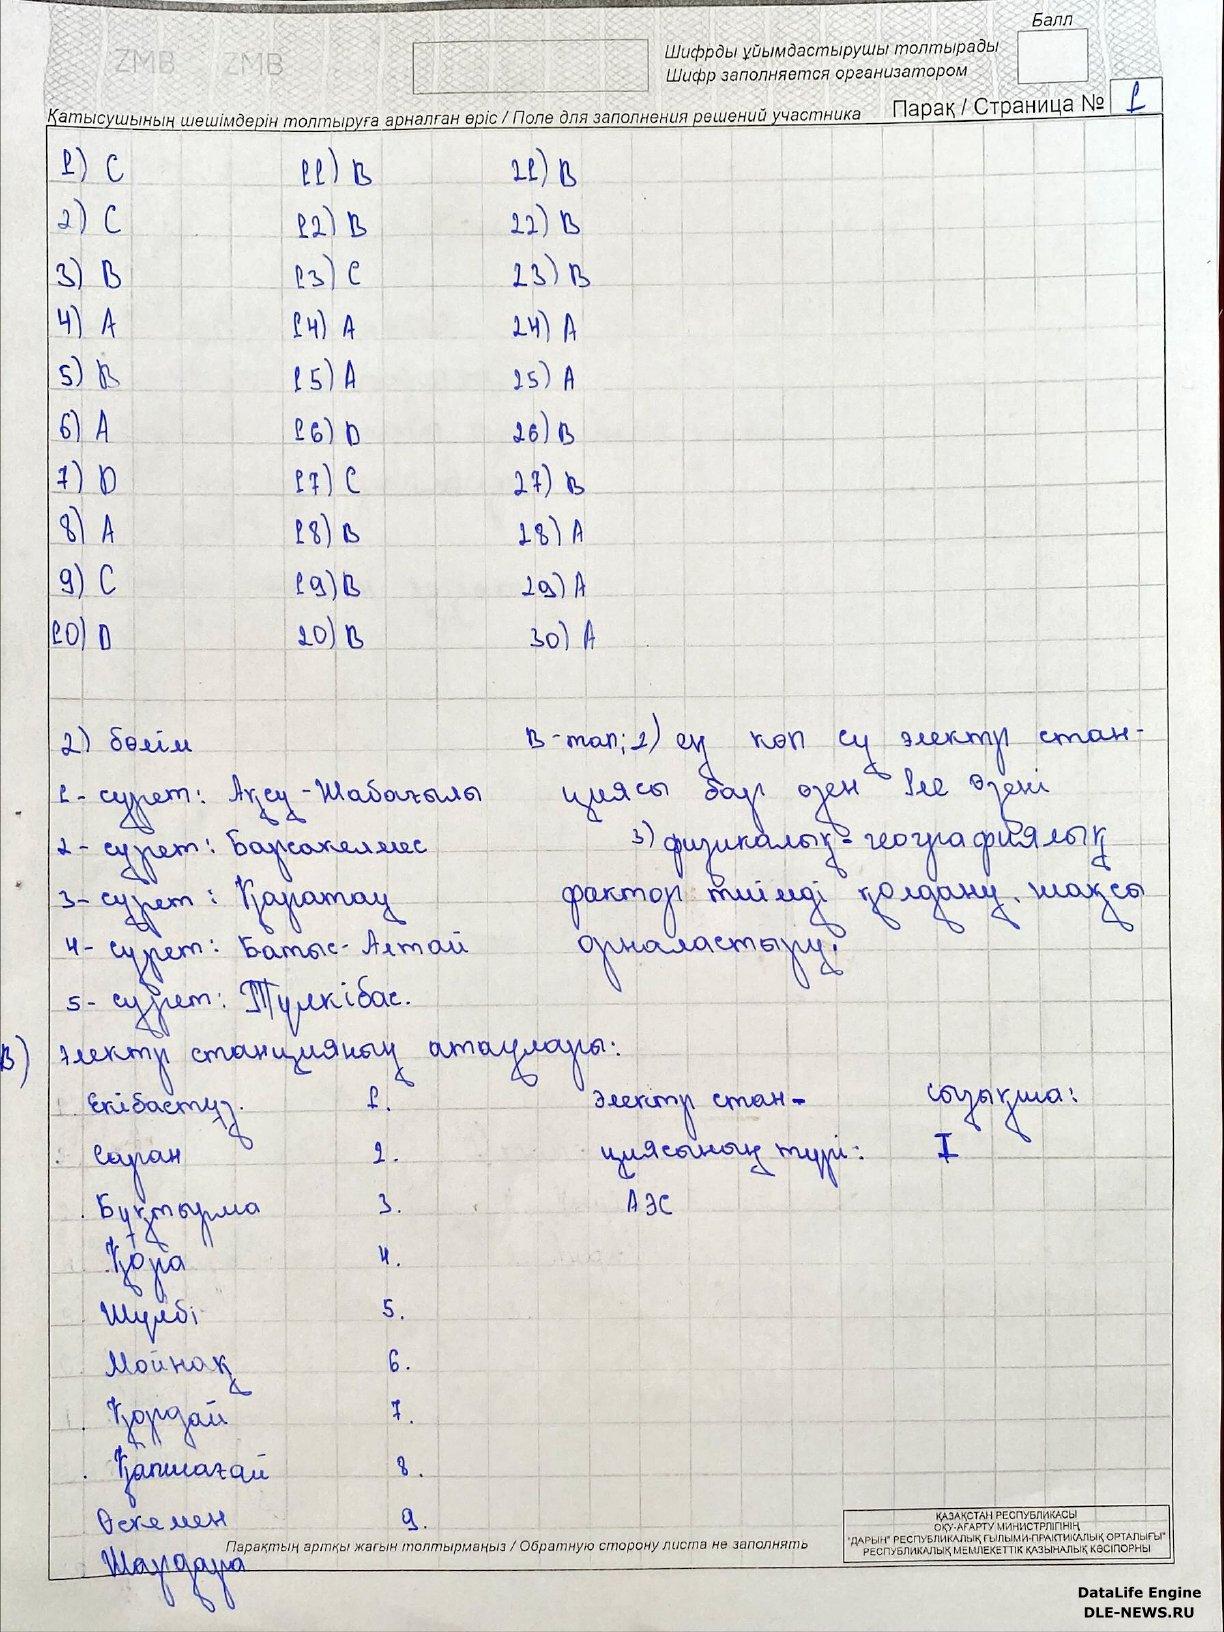 ZMB ZMB
Балл
Шифрды ұйымдастырушы толтырады
Шифр заполняется организатором
Қатысушының шешімдерін толтыруға арналған өріс / Поле для заполнения решений участника
Парақ / Страница № 1
1) C 11) B 21) B
2) C 12) B 22) B
3) B 13) C 23) B
4) A 14) A 24) A
5) B 15) A 25) A
6) A 16) D 26) B
7) D 17) C 27) B
8) A 18) B 28) A
9) C 19) B 29) A
10) D 20) B 30) A
2) бөлім
1- сурет: Ақсу-Жабағылы
2- сурет: Барсакелмес
3- сурет: Қаратау
4- сурет: Батыс-Алтай
5- сурет: Түлкібас.
В-тап; 2) ең көп су электр стан-
циясы бар өзен Іле өзені
3) физикалық-географиялық
фактор тиімді қолдану. жақсы
орналастыру.
В) электр станцияның атаулары:
Екібастұз. 1.
Саран 2.
Бұқтырма 3.
Қора 4.
Шүлбі 5.
Мойнақ 6.
Қордай 7.
Қапшағай 8.
Өскемен 9.
Шардара
электр стан-
циясының түрі:
АЭС
сызықша:
I
Парақтың артқы жағын толтырмаңыз / Обратную сторону листа не заполнять
ҚАЗАҚСТАН РЕСПУБЛИКАСЫ
ОҚУ-АҒАРТУ МИНИСТРЛІГІНІҢ
"ДАРЫН" РЕСПУБЛИКАЛЫҚ ҒЫЛЫМИ-ПРАКТИКАЛЫҚ ОРТАЛЫҒЫ"
РЕСПУБЛИКАЛЫҚ МЕМЛЕКЕТТІК ҚАЗЫНАЛЫҚ КӘСІПОРНЫ
DataLife Engine
DLE-NEWS.RU